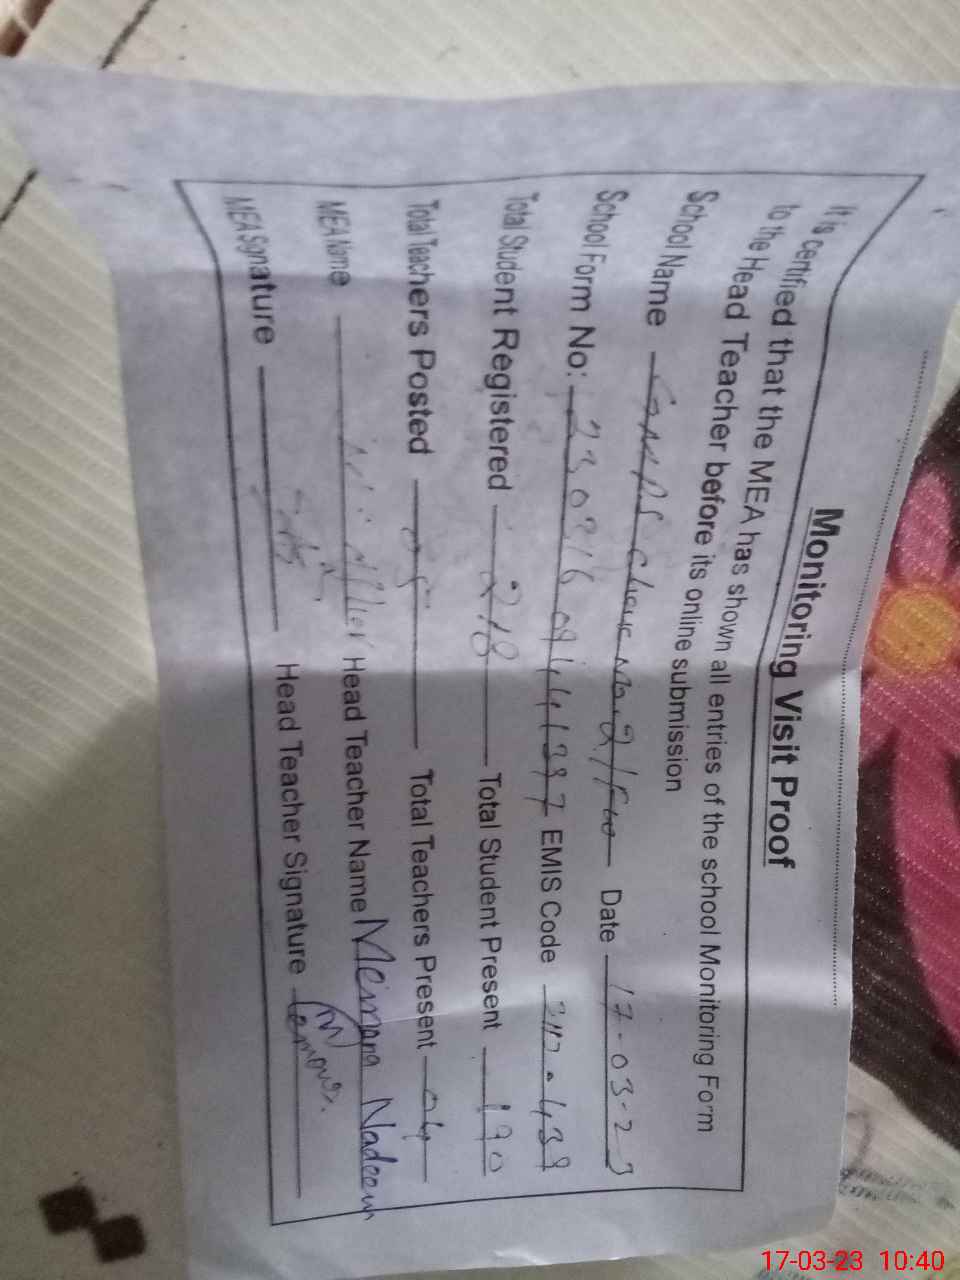 Monitoring Visit Proof
It is certified that the MEA has shown all entries of the school Monitoring Form
to the Head Teacher before its online submission
School Name GMPS No. 2/ Date 17-03-23
School Form No: EMIS Code
Total Student Registered 218 Total Student Present 190
Total Teachers Posted 05 Total Teachers Present 04
MEA Name Head Teacher Name Meimona Nadeem
MEA Signature Head Teacher Signature
17-03-23 10:40